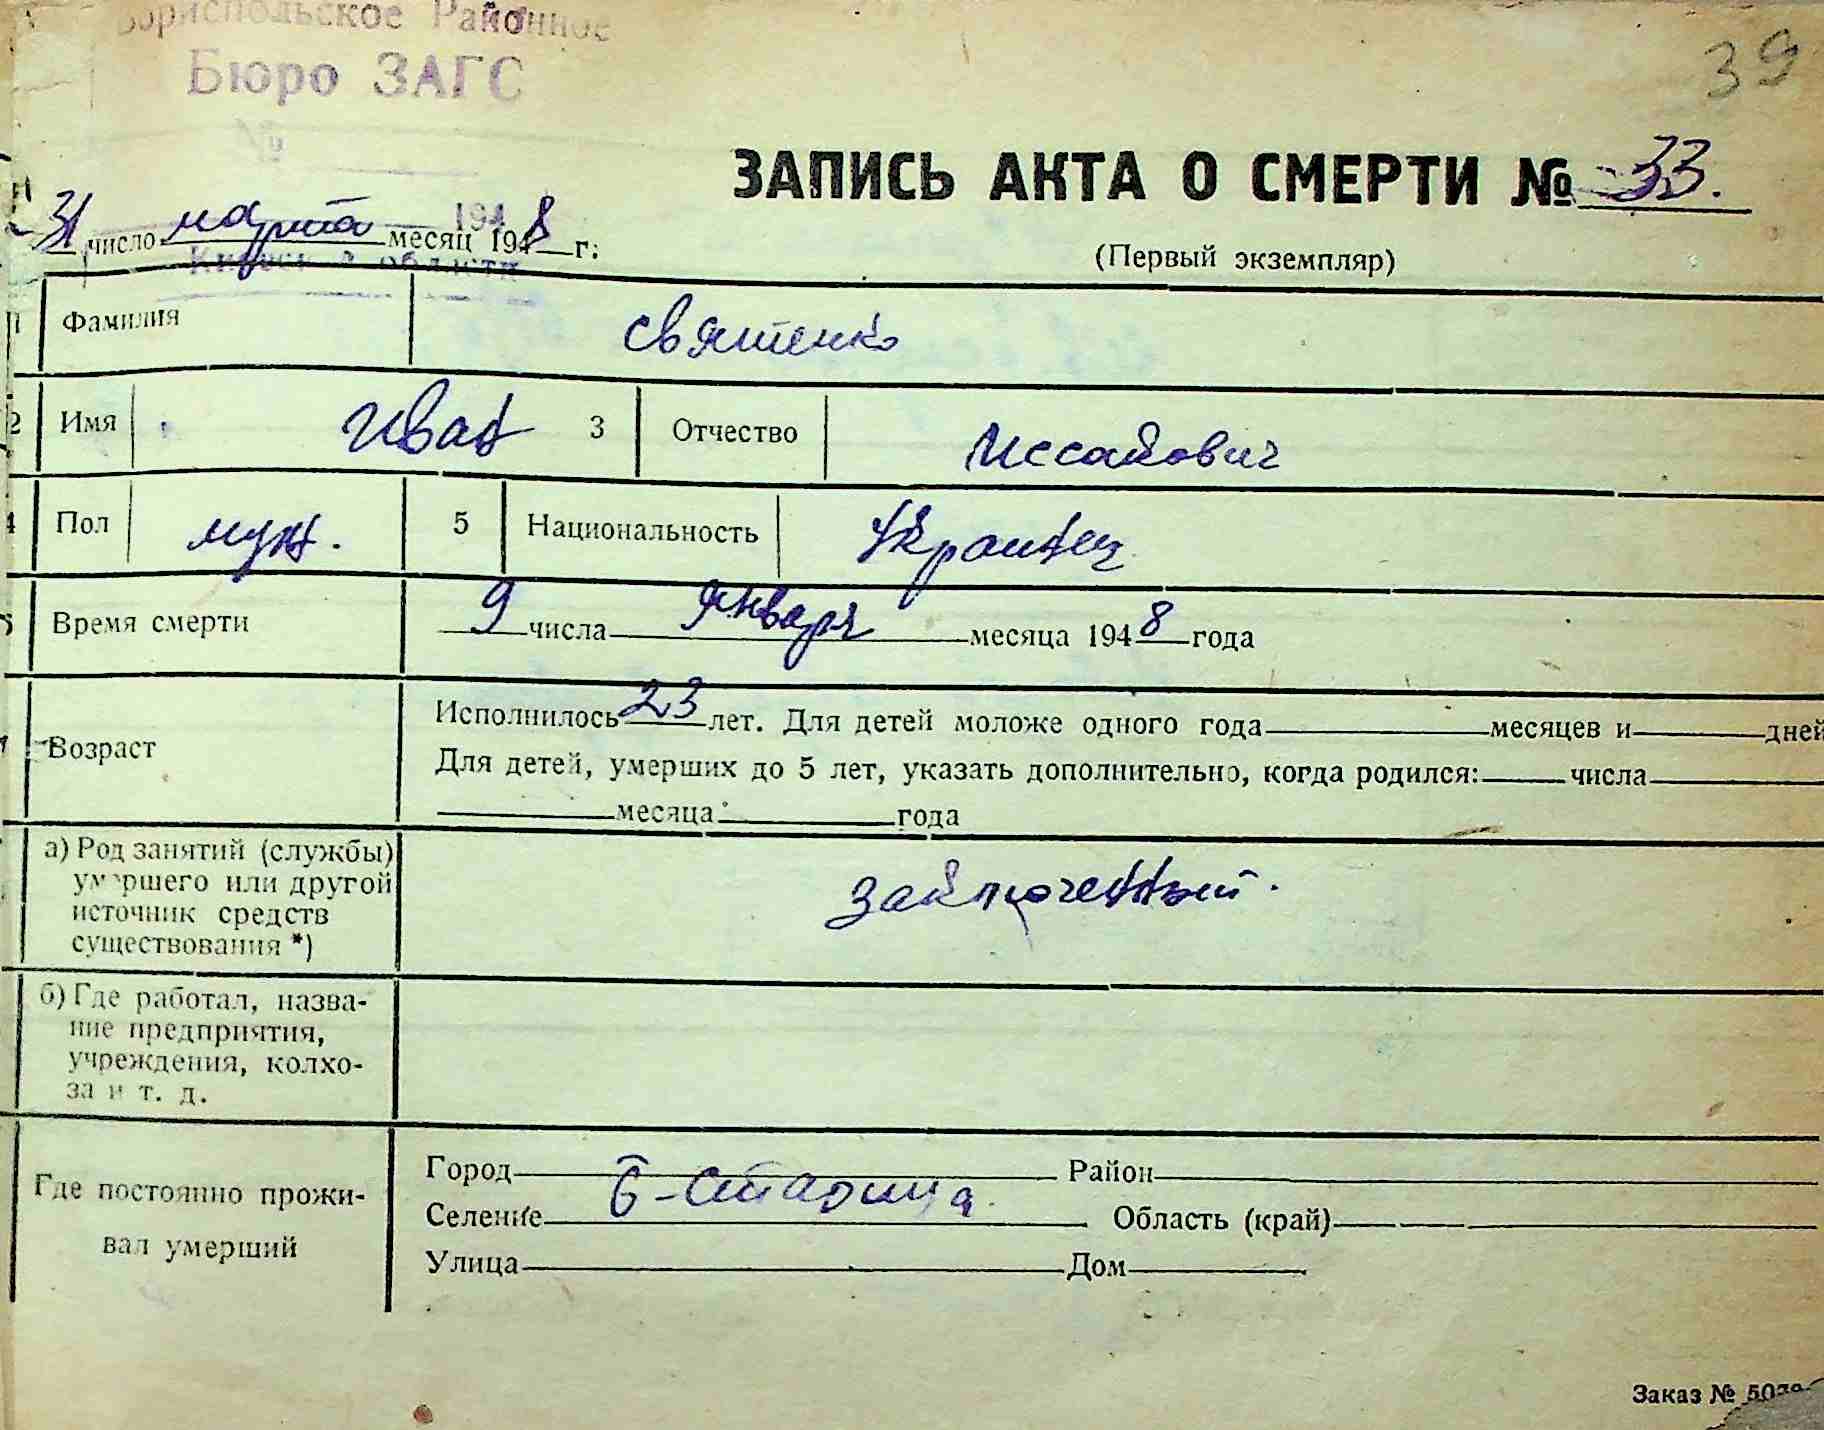 Бориспольское Районное
Бюро ЗАГС
№
39
ЗАПИСЬ АКТА О СМЕРТИ № 33.
194
31 число марта месяц 1948 г:
Киевской области
(Первый экземпляр)
1 Фамилия Святенко
2 Имя Иван 3 Отчество Иссакович
4 Пол муж. 5 Национальность Украинец
6 Время смерти 9 числа Января месяца 1948 года
7 Возраст Исполнилось 23 лет. Для детей моложе одного года месяцев и дней
Для детей, умерших до 5 лет, указать дополнительно, когда родился: числа
месяца года
а) Род занятий (службы)
умершего или другой
источник средств
существования *)
заключенный.
б) Где работал, назва-
ние предприятия,
учреждения, колхо-
за и т. д.
Где постоянно прожи-
вал умерший
Город Район
Селение б-Старица Область (край)
Улица Дом
Заказ №